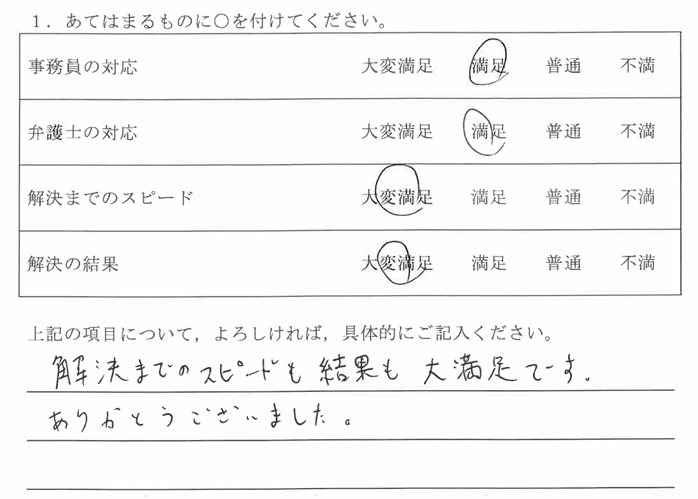 1．あてはまるものに○を付けてください。
事務員の対応 大変満足 満足 普通 不満
弁護士の対応 大変満足 満足 普通 不満
解決までのスピード 大変満足 満足 普通 不満
解決の結果 大変満足 満足 普通 不満
上記の項目について，よろしければ，具体的にご記入ください。
解決までのスピードも結果も大満足です.
ありがとうございました。